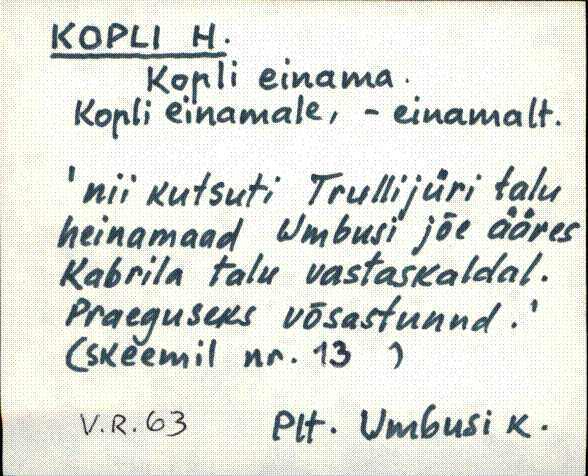 KOPLI H.
Kopli einama.
Kopli einamale, - einamalt.
'nii kutsuti Trullijüri talu
heinamaad Umbusi jõe ääres
Kabrila talu vastaskaldal.
Praeguseks võsastunnd.'
(skeemil nr. 13 )
V.R. 63 Plt. Umbusi k.